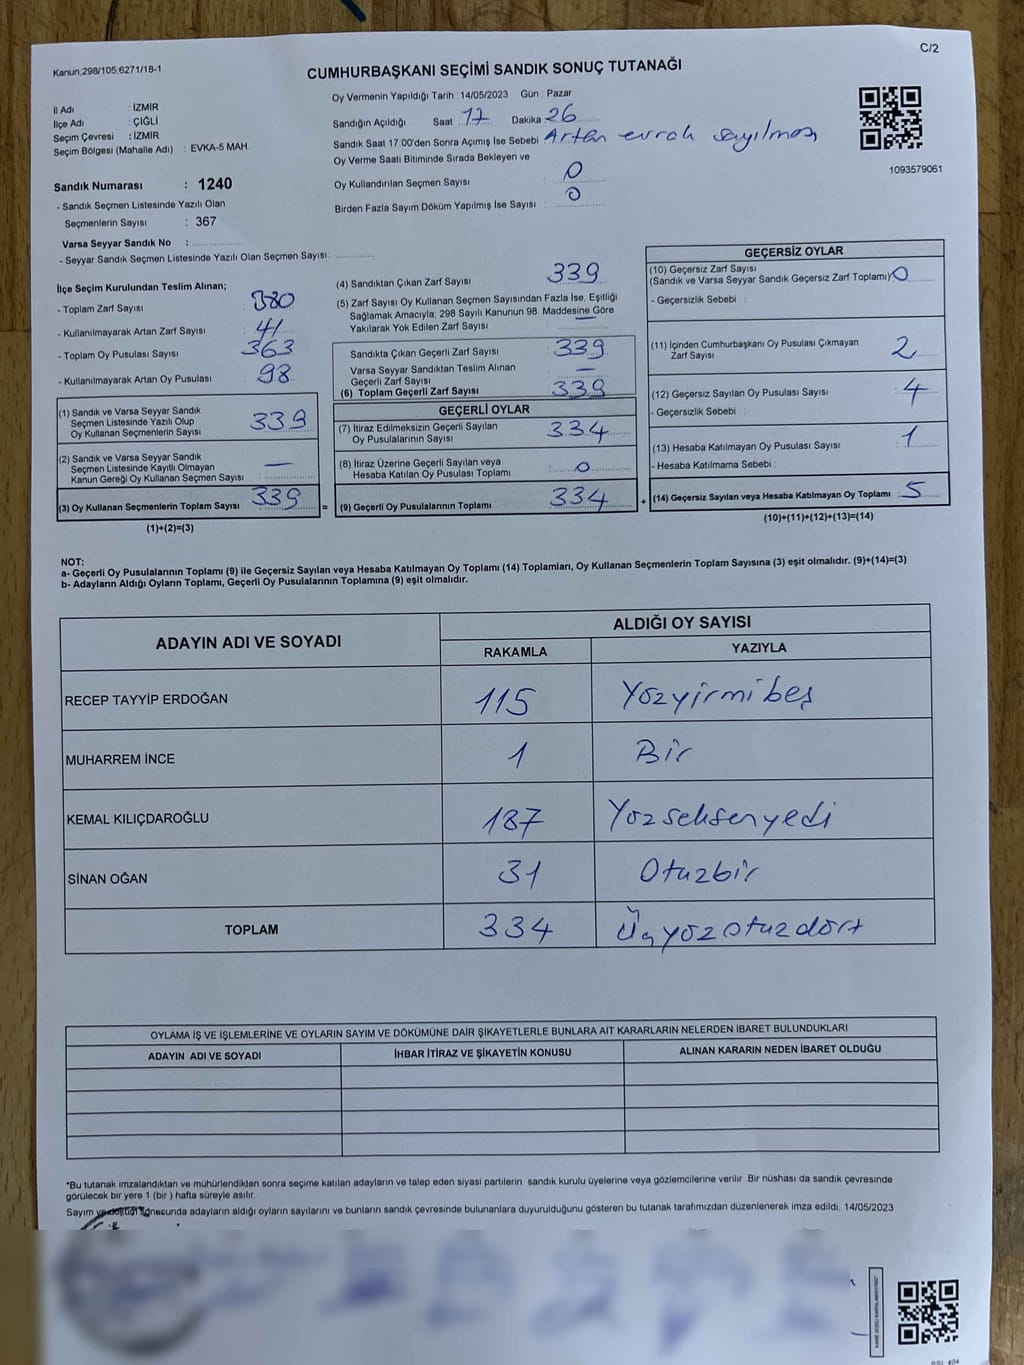 C/2
Kanun;298/105,6271/18-1
CUMHURBAŞKANI SEÇİMİ SANDIK SONUÇ TUTANAĞI
İl Adı : İZMİR
İlçe Adı : ÇİĞLİ
Seçim Çevresi : İZMİR
Seçim Bölgesi (Mahalle Adı) : EVKA-5 MAH.
Sandık Numarası : 1240
- Sandık Seçmen Listesinde Yazılı Olan
Seçmenlerin Sayısı : 367
Varsa Seyyar Sandık No :
- Seyyar Sandık Seçmen Listesinde Yazılı Olan Seçmen Sayısı:
Oy Vermenin Yapıldığı Tarih : 14/05/2023 Gün : Pazar
Sandığın Açıldığı Saat : 17 Dakika 26
Sandık Saat 17:00'den Sonra Açımış İse Sebebi : Artan evrak sayılması
Oy Verme Saati Bitiminde Sırada Bekleyen ve
Oy Kullandırılan Seçmen Sayısı : 0
Birden Fazla Sayım Döküm Yapılmış İse Sayısı : 0
1093579061
İlçe Seçim Kurulundan Teslim Alınan;
- Toplam Zarf Sayısı : 380
- Kullanılmayarak Artan Zarf Sayısı : 41
- Toplam Oy Pusulası Sayısı : 363
- Kullanılmayarak Artan Oy Pusulası : 98
(1) Sandık ve Varsa Seyyar Sandık
Seçmen Listesinde Yazılı Olup
Oy Kullanan Seçmenlerin Sayısı : 339
(2) Sandık ve Varsa Seyyar Sandık
Seçmen Listesinde Kayıtlı Olmayan
Kanun Gereği Oy Kullanan Seçmen Sayısı : —
(3) Oy Kullanan Seçmenlerin Toplam Sayısı : 339 =
(1)+(2)=(3)
(4) Sandıktan Çıkan Zarf Sayısı : 339
(5) Zarf Sayısı Oy Kullanan Seçmen Sayısından Fazla İse, Eşitliği
Sağlamak Amacıyla, 298 Sayılı Kanunun 98. Maddesine Göre
Yakılarak Yok Edilen Zarf Sayısı : —
Sandıkta Çıkan Geçerli Zarf Sayısı : 339
Varsa Seyyar Sandıktan Teslim Alınan
Geçerli Zarf Sayısı : —
(6) Toplam Geçerli Zarf Sayısı : 339
GEÇERLİ OYLAR
(7) İtiraz Edilmeksizin Geçerli Sayılan
Oy Pusulalarının Sayısı : 334
(8) İtiraz Üzerine Geçerli Sayılan veya
Hesaba Katılan Oy Pusulası Toplamı : 0
(9) Geçerli Oy Pusulalarının Toplamı : 334 +
GEÇERSİZ OYLAR
(10) Geçersiz Zarf Sayısı
(Sandık ve Varsa Seyyar Sandık Geçersiz Zarf Toplamı) 0
- Geçersizlik Sebebi :
(11) İçinden Cumhurbaşkanı Oy Pusulası Çıkmayan
Zarf Sayısı : 2
(12) Geçersiz Sayılan Oy Pusulası Sayısı : 4
- Geçersizlik Sebebi :
(13) Hesaba Katılmayan Oy Pusulası Sayısı : 1
- Hesaba Katılmama Sebebi :
(14) Geçersiz Sayılan veya Hesaba Katılmayan Oy Toplamı : 5
(10)+(11)+(12)+(13)=(14)
NOT:
a- Geçerli Oy Pusulalarının Toplamı (9) ile Geçersiz Sayılan veya Hesaba Katılmayan Oy Toplamı (14) Toplamları, Oy Kullanan Seçmenlerin Toplam Sayısına (3) eşit olmalıdır. (9)+(14)=(3)
b- Adayların Aldığı Oyların Toplamı, Geçerli Oy Pusulalarının Toplamına (9) eşit olmalıdır.
ADAYIN ADI VE SOYADI ALDIĞI OY SAYISI
RAKAMLA YAZIYLA
RECEP TAYYİP ERDOĞAN 115 Yüzyirmibeş
MUHARREM İNCE 1 Bir
KEMAL KILIÇDAROĞLU 187 Yüzseksenyedi
SİNAN OĞAN 31 Otuzbir
TOPLAM 334 Üçyüzotuzdört
OYLAMA İŞ VE İŞLEMLERİNE VE OYLARIN SAYIM VE DÖKÜMÜNE DAİR ŞİKAYETLERLE BUNLARA AİT KARARLARIN NELERDEN İBARET BULUNDUKLARI
ADAYIN ADI VE SOYADI İHBAR İTİRAZ VE ŞİKAYETİN KONUSU ALINAN KARARIN NEDEN İBARET OLDUĞU
*Bu tutanak imzalandıktan ve mühürlendikten sonra seçime katılan adayların ve talep eden siyasi partilerin sandık kurulu üyelerine veya gözlemcilerine verilir. Bir nüshası da sandık çevresinde
görülecek bir yere 1 (bir ) hafta süreyle asılır.
Sayım ve döküm sonucunda adayların aldığı oyların sayılarını ve bunların sandık çevresinde bulunanlara duyurulduğunu gösteren bu tutanak tarafımızdan düzenlenerek imza edildi. 14/05/2023